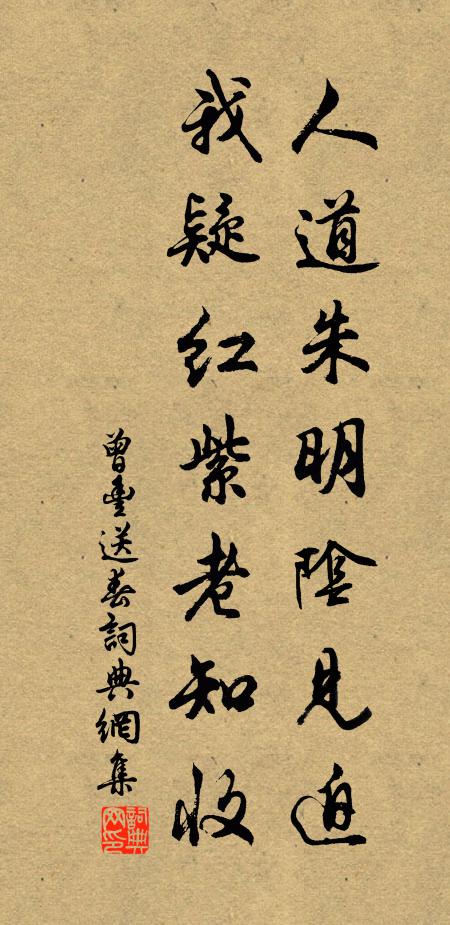 人道朱明陰見迫
我疑紅紫老知收
曾豐送春詞典網集
詞典網印